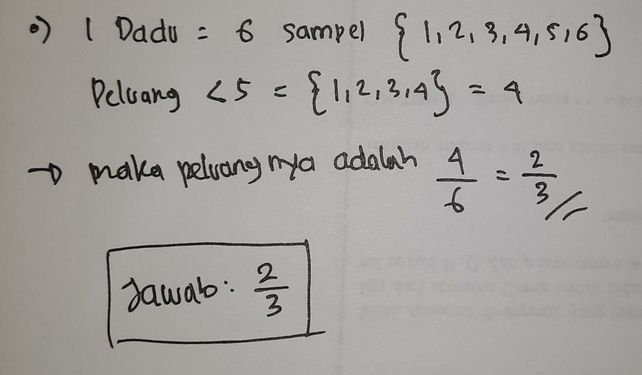 •) 1 Dadu = 6 sampel {1,2,3,4,5,6}
Peluang <5 = {1,2,3,4} = 4
→ maka peluangnya adalah 4/6 = 2/3 //
Jawab: 2/3